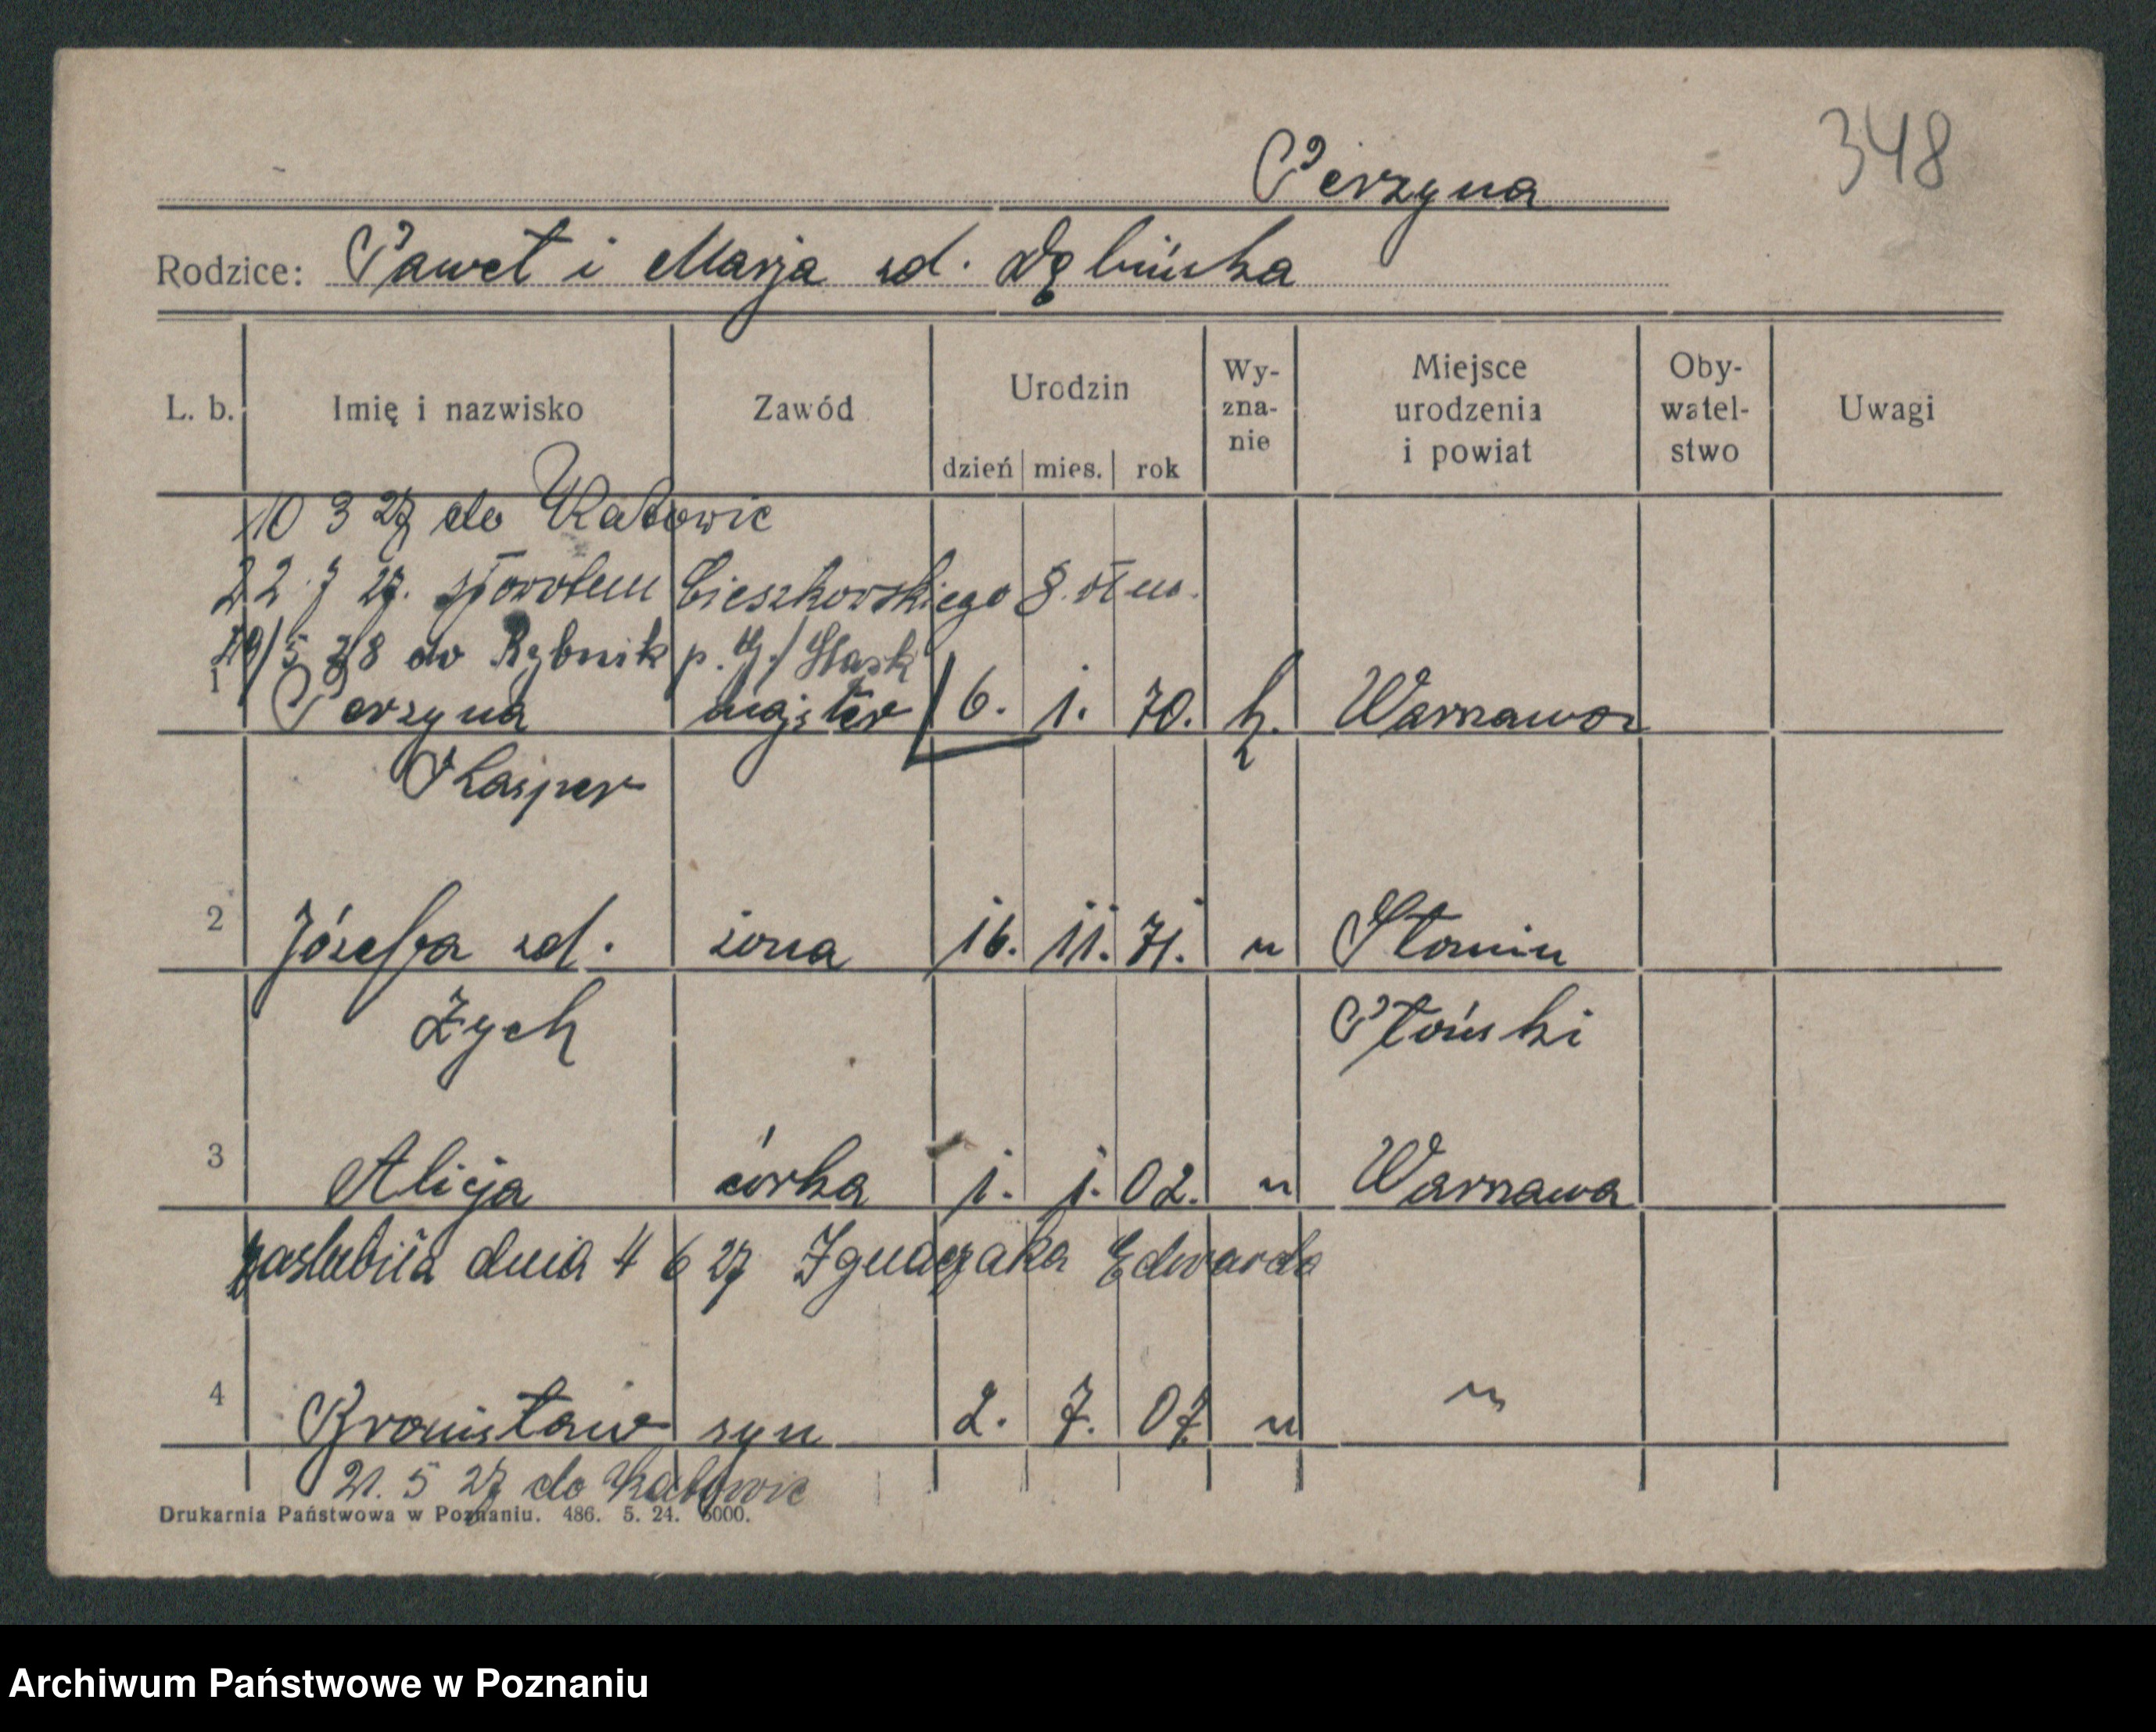 348
Perzyna
Rodzice: Paweł i Marja zd. Dębińska
L. b. Imię i nazwisko Zawód Urodzin dzień mies. rok Wy-zna-nie Miejsce urodzenia i powiat Oby-watel-stwo Uwagi
10 3 27 do Katowic
22 7 27. zpowrotem Cieszkowskiego 8.
19/5 28 do Rybnik p. G./Śląsk
1 Perzyna majster 6. 1. 70. k. Warszawa
Kasper
2 Józefa zd. żona 16. 11. 71. "
Żych Płoński
3 Alicja córka 1. 1. 02. " Warszawa
zaślubiła dnia 4 6 27 Ignaczaka Edwarda
4 Bronisław syn 2. 7. 07. " "
21. 5 27 do Katowic
Drukarnia Państwowa w Poznaniu. 486. 5. 24. 5000.
Archiwum Państwowe w Poznaniu